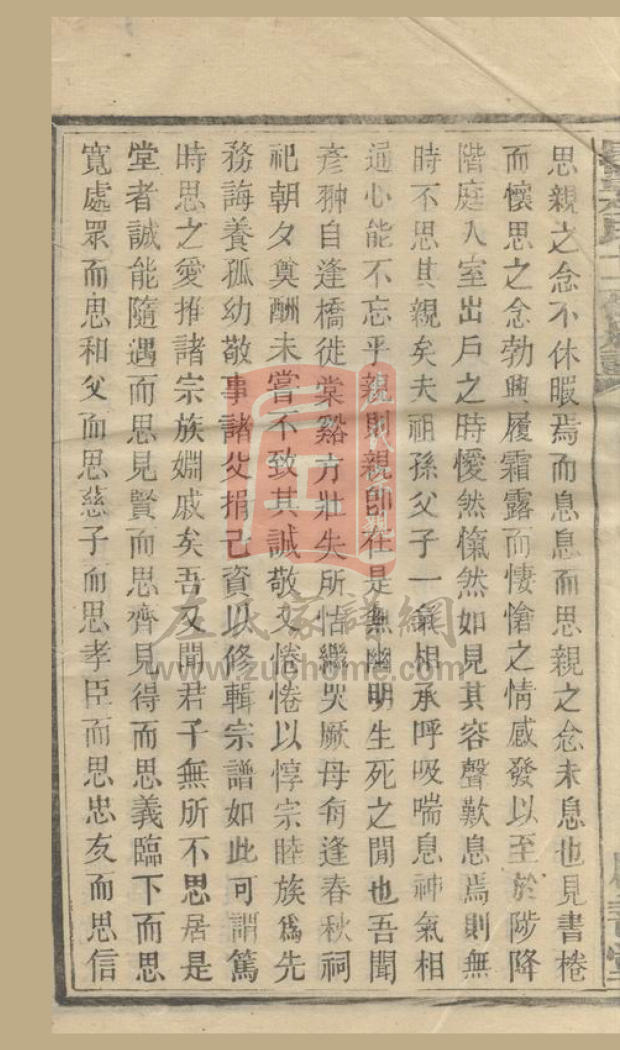 思親之念不休暇焉而息息而思親之念未息也見書棬
而懷思之念勃興履霜露而悽愴之情感發以至於陟降
階庭入室出戶之時僾然愾然如見其容聲歎息焉則無
時不思其親矣夫祖孫父子一氣相承呼吸喘息神氣相
通心能不忘乎親則親卽在是無幽明生死之閒也吾聞
彥翀自逢橋徙棠谿方壯失所怙繼哭厥母每逢春秋祠
祀朝夕奠酬未嘗不致其誠敬又惓惓以惇宗睦族爲先
務誨養孤幼敬事諸父捐己資以修輯宗譜如此可謂篤
時思之愛推諸宗族婣戚矣吾又聞君子無所不思居是
堂者誠能隨遇而思見賢而思齊見得而思義臨下而思
寬處眾而思和父而思慈子而思孝臣而思忠友而思信
左氏家譜網
www.zuohome.com